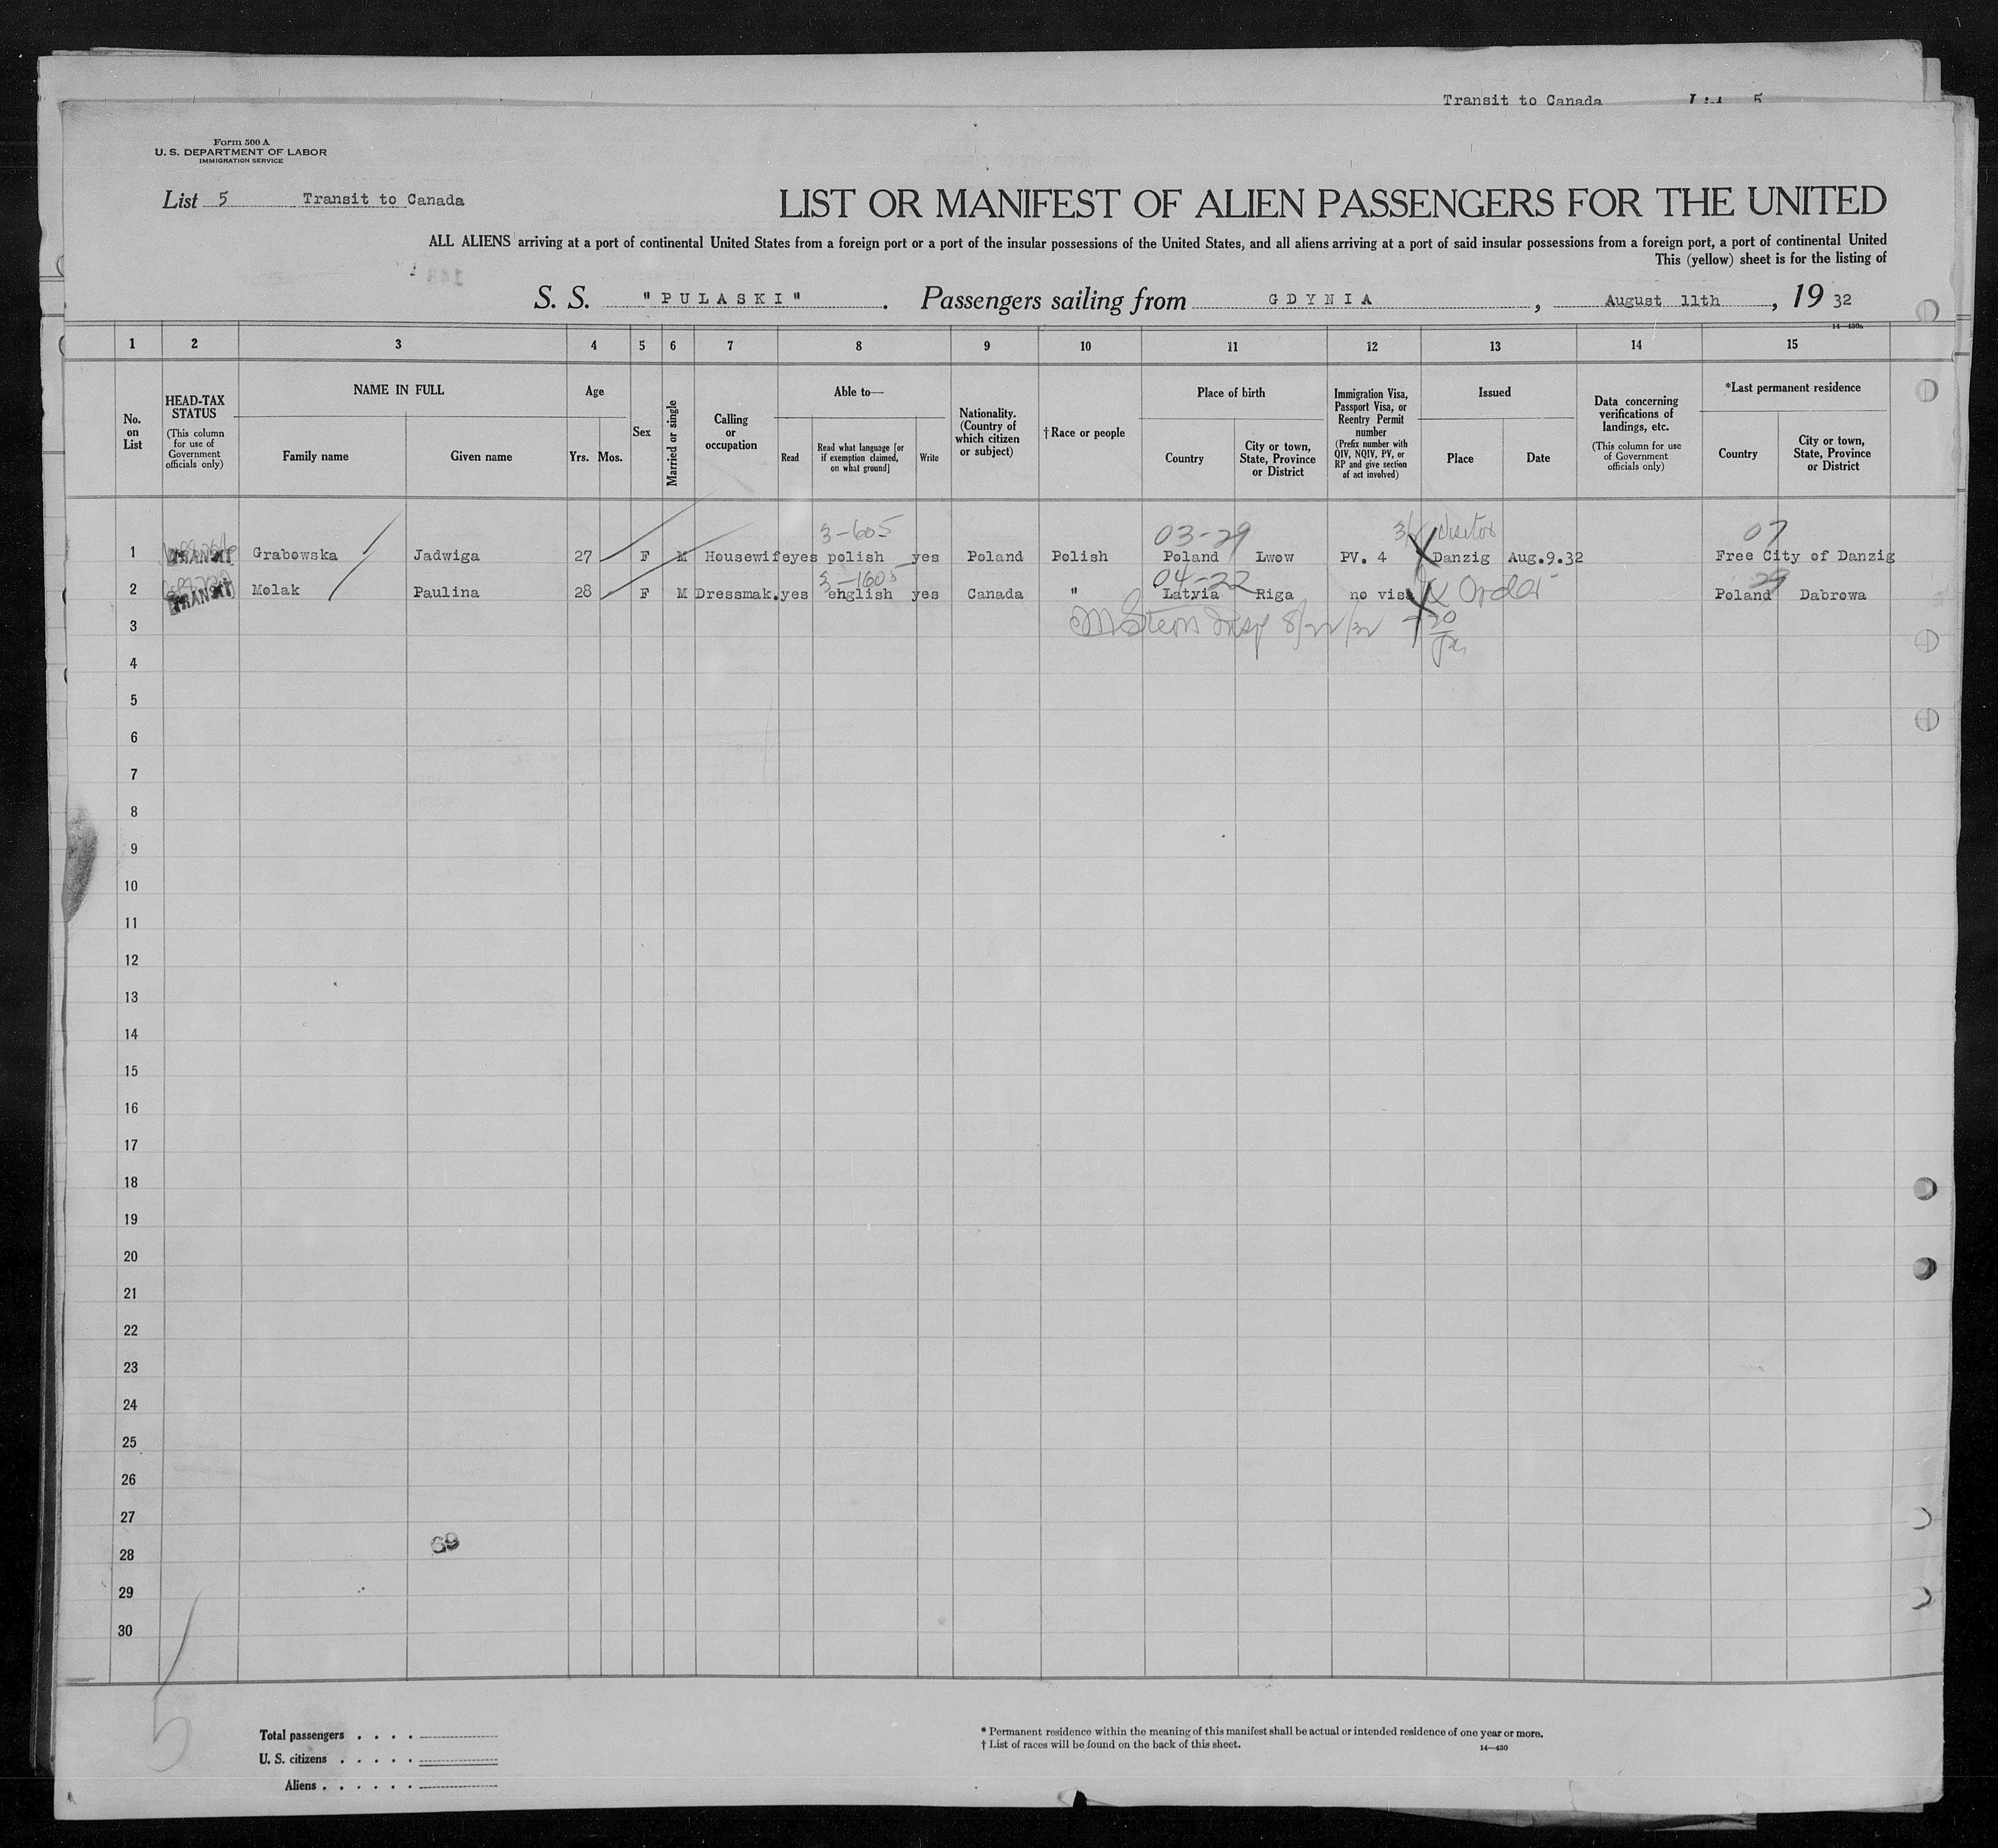 Transit to Canada
Form 500 A
U. S. DEPARTMENT OF LABOR
IMMIGRATION SERVICE
List 5 Transit to Canada
LIST OR MANIFEST OF ALIEN PASSENGERS FOR THE UNITED
ALL ALIENS arriving at a port of continental United States from a foreign port or a port of the insular possessions of the United States, and all aliens arriving at a port of said insular possessions from a foreign port, a port of continental United
This (yellow) sheet is for the listing of
S. S. "PULASKI". Passengers sailing from GDYNIA, August 11th, 19 32
14—430a
1 2 3 4 5 6 7 8 9 10 11 12 13 14 15
No. on List
HEAD-TAX STATUS
(This column for use of Government officials only)
NAME IN FULL
Family name Given name
Age
Yrs. Mos.
Sex
Married or single
Calling or occupation
Able to—
Read
Read what language [or if exemption claimed, on what ground]
Write
Nationality. (Country of which citizen or subject)
†Race or people
Place of birth
Country
City or town, State, Province or District
Immigration Visa, Passport Visa, or Reentry Permit number
(Prefix number with QIV, NQIV, PV, or RP and give section of act involved)
Issued
Place Date
Data concerning verifications of landings, etc.
(This column for use of Government officials only)
*Last permanent residence
Country
City or town, State, Province or District
3-605 03-29 07
1 TRANSIT Grabowska Jadwiga 27 F M Housewife yes polish yes Poland Polish Poland Lwow PV. 4 Danzig Aug.9.32 Free City of Danzig
04-22 29
2 TRANSIT Molak Paulina 28 F M Dressmak. yes english yes Canada " Latvia Riga no visa Order Poland Dabrowa
3 8/22/32
4
5
6
7
8
9
10
11
12
13
14
15
16
17
18
19
20
21
22
23
24
25
26
27
69
28
29
30
5
Total passengers . . . .
U. S. citizens . . . . .
Aliens . . . . . .
* Permanent residence within the meaning of this manifest shall be actual or intended residence of one year or more.
† List of races will be found on the back of this sheet.
14—430